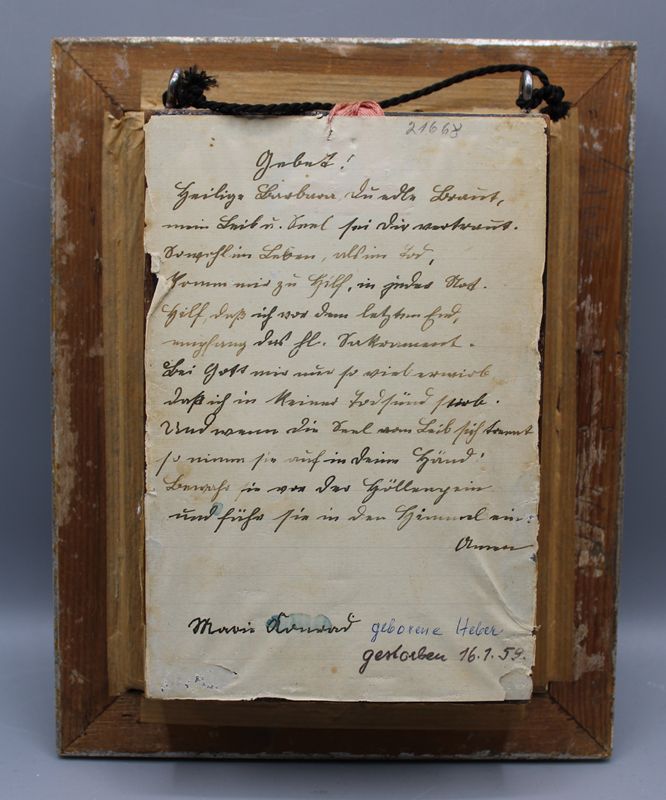 21668
Gebet!
Heilige Barbara, du edle Braut,
mein Leib u. Seel sei Dir vertraut.
Sowohl im Leben, als im Tod,
komm mir zu Hilf, in jeder Not.
Hilf, daß ich vor dem letzten End,
empfang das hl. Sakrament.
Bei Gott mir nur so viel erwirb
daß ich in keiner Todsünd sterb.
Und wenn die Seel vom Leib sich trennt
so nimm sie auf in deine Händ!
Bewahr sie vor der Höllenpein
und führ sie in den Himmel ein.
Amen
Marie Konrad geborene Heber
gestorben 16.1.59.